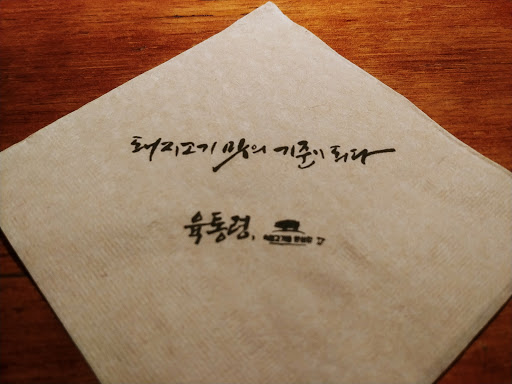 돼지고기 맛의 기준이 되다
육통령,